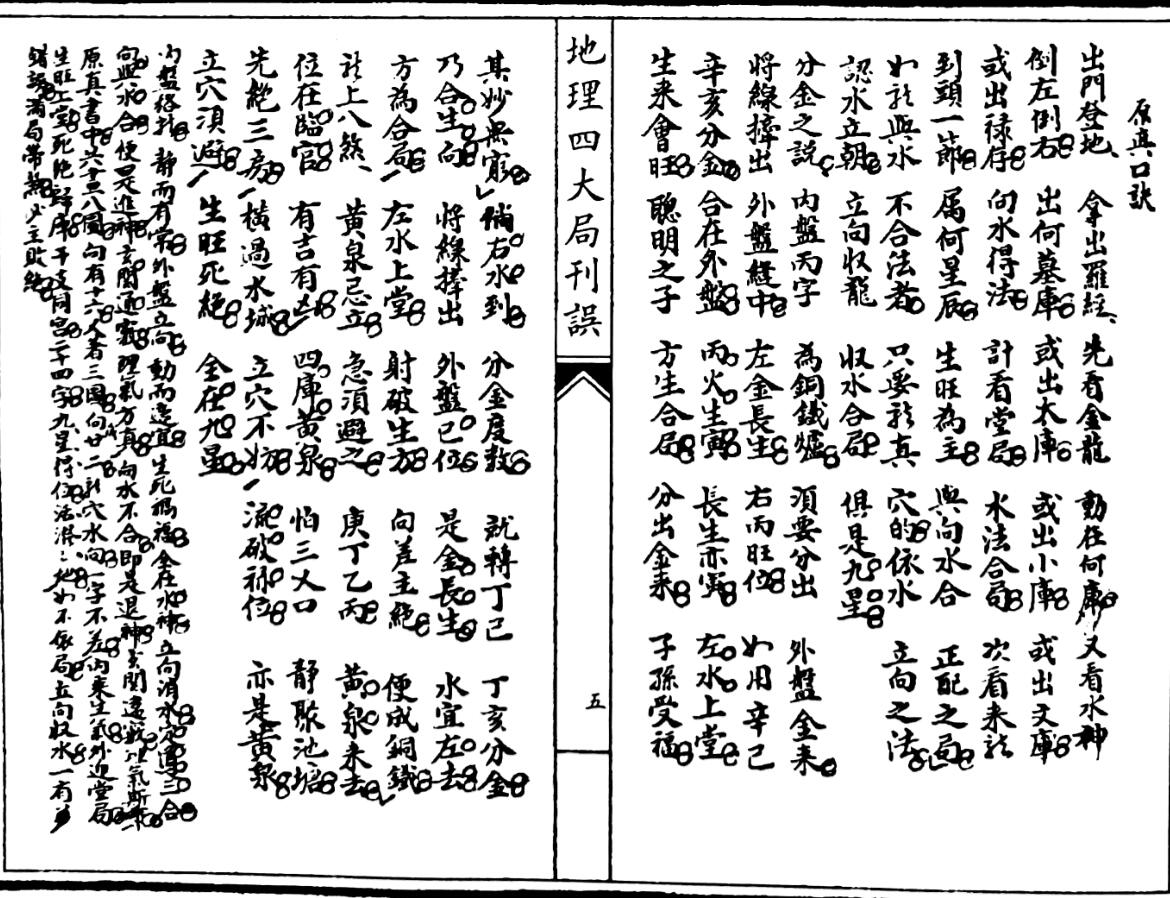 原真口訣
出門登地 拿出羅經 先看金龍 動在何庫 又看水神
倒左倒右 出何墓庫 或出太庫 或出小庫 或出文庫
或出祿存 向水得法 計看堂局 水法合局 次看来龍
到頭一節 属何星辰 生旺為主 與向水合 正配之局
如龍與水 不合法者 只要龍真 穴的依水 立向之法
認水立朝 立向收龍 收水合局 俱是九星
分金之說 内盤丙字 為銅鐵爐 須要分出 外盤金来
將線擡出 外盤縫中 左金長生 右丙旺位 如用辛巳
辛亥分金 合在外盤 丙火生寅 長生亦寅 左水上堂
生来會旺 聰明之子 方生合局 分出金来 子孫受福
地理四大局刊誤
五
其妙無窮 倘右水到 分金度数 就轉丁巳 丁亥分金
乃合生向 將線擡出 外盤巳位 是金長生 水宜左去
方為合局 左水上堂 射破生方 向差主絕 便成銅鐵
龍上八煞 黃泉忌立 急須避之 庚丁乙丙 黃泉来去
位在臨官 有吉有凶 四庫黃泉 怕三叉口 靜聚池塘
先絕三房 橫過水城 立穴不妨 流破祿位 亦是黃泉
立穴須避 生旺死絕 全在九星
内盤格龍 靜而有常 外盤立向 動而適宜 生死禍福 全在水神 立向消水 定運三合
向與水合 便是進神 玄関通竅 理氣方真 向水不合 即是退神 玄関
原真書中六十四八圖 句有十六 人著三圖 向廿二 龍穴水向 一字不差 内乘生氣 外迎堂局
生旺上堂 死絕歸庫 干支同宮 二十四字 九星得位 活潑潑地 如不依局 立向收水 一有
錯誤 滿局帶煞 少主敗絕